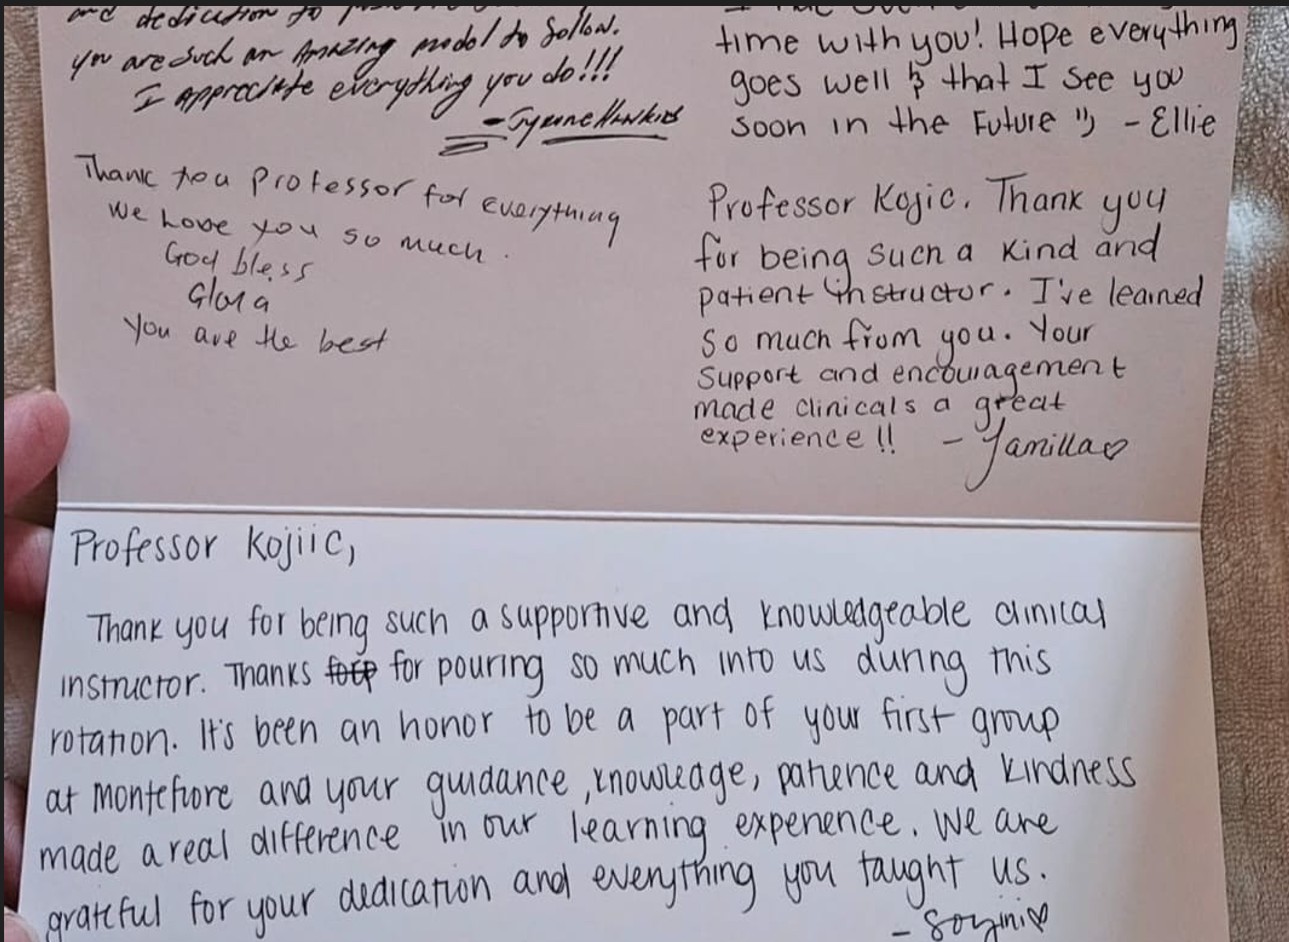 and dedication to
you are such an Amazing model to follow.
I appreciate everything you do!!!
time with you! Hope everything
goes well & that I see you
soon in the Future :) - Ellie
Thank you Professor for everything
We Love you so much.
God bless
Gloria
You are the best
Professor Kojic. Thank you
for being such a kind and
patient instructor. I've learned
so much from you. Your
support and encouragement
made clinicals a great
experience!! - Yamilla♡
Professor Kojiic,
Thank you for being such a supportive and knowledgeable clinical
instructor. Thanks for pouring so much into us during this
rotation. It's been an honor to be a part of your first group
at montefiore and your guidance, knowledge, patience and kindness
made a real difference in our learning experience. We are
grateful for your dedication and everything you taught us.
- Soyini♡